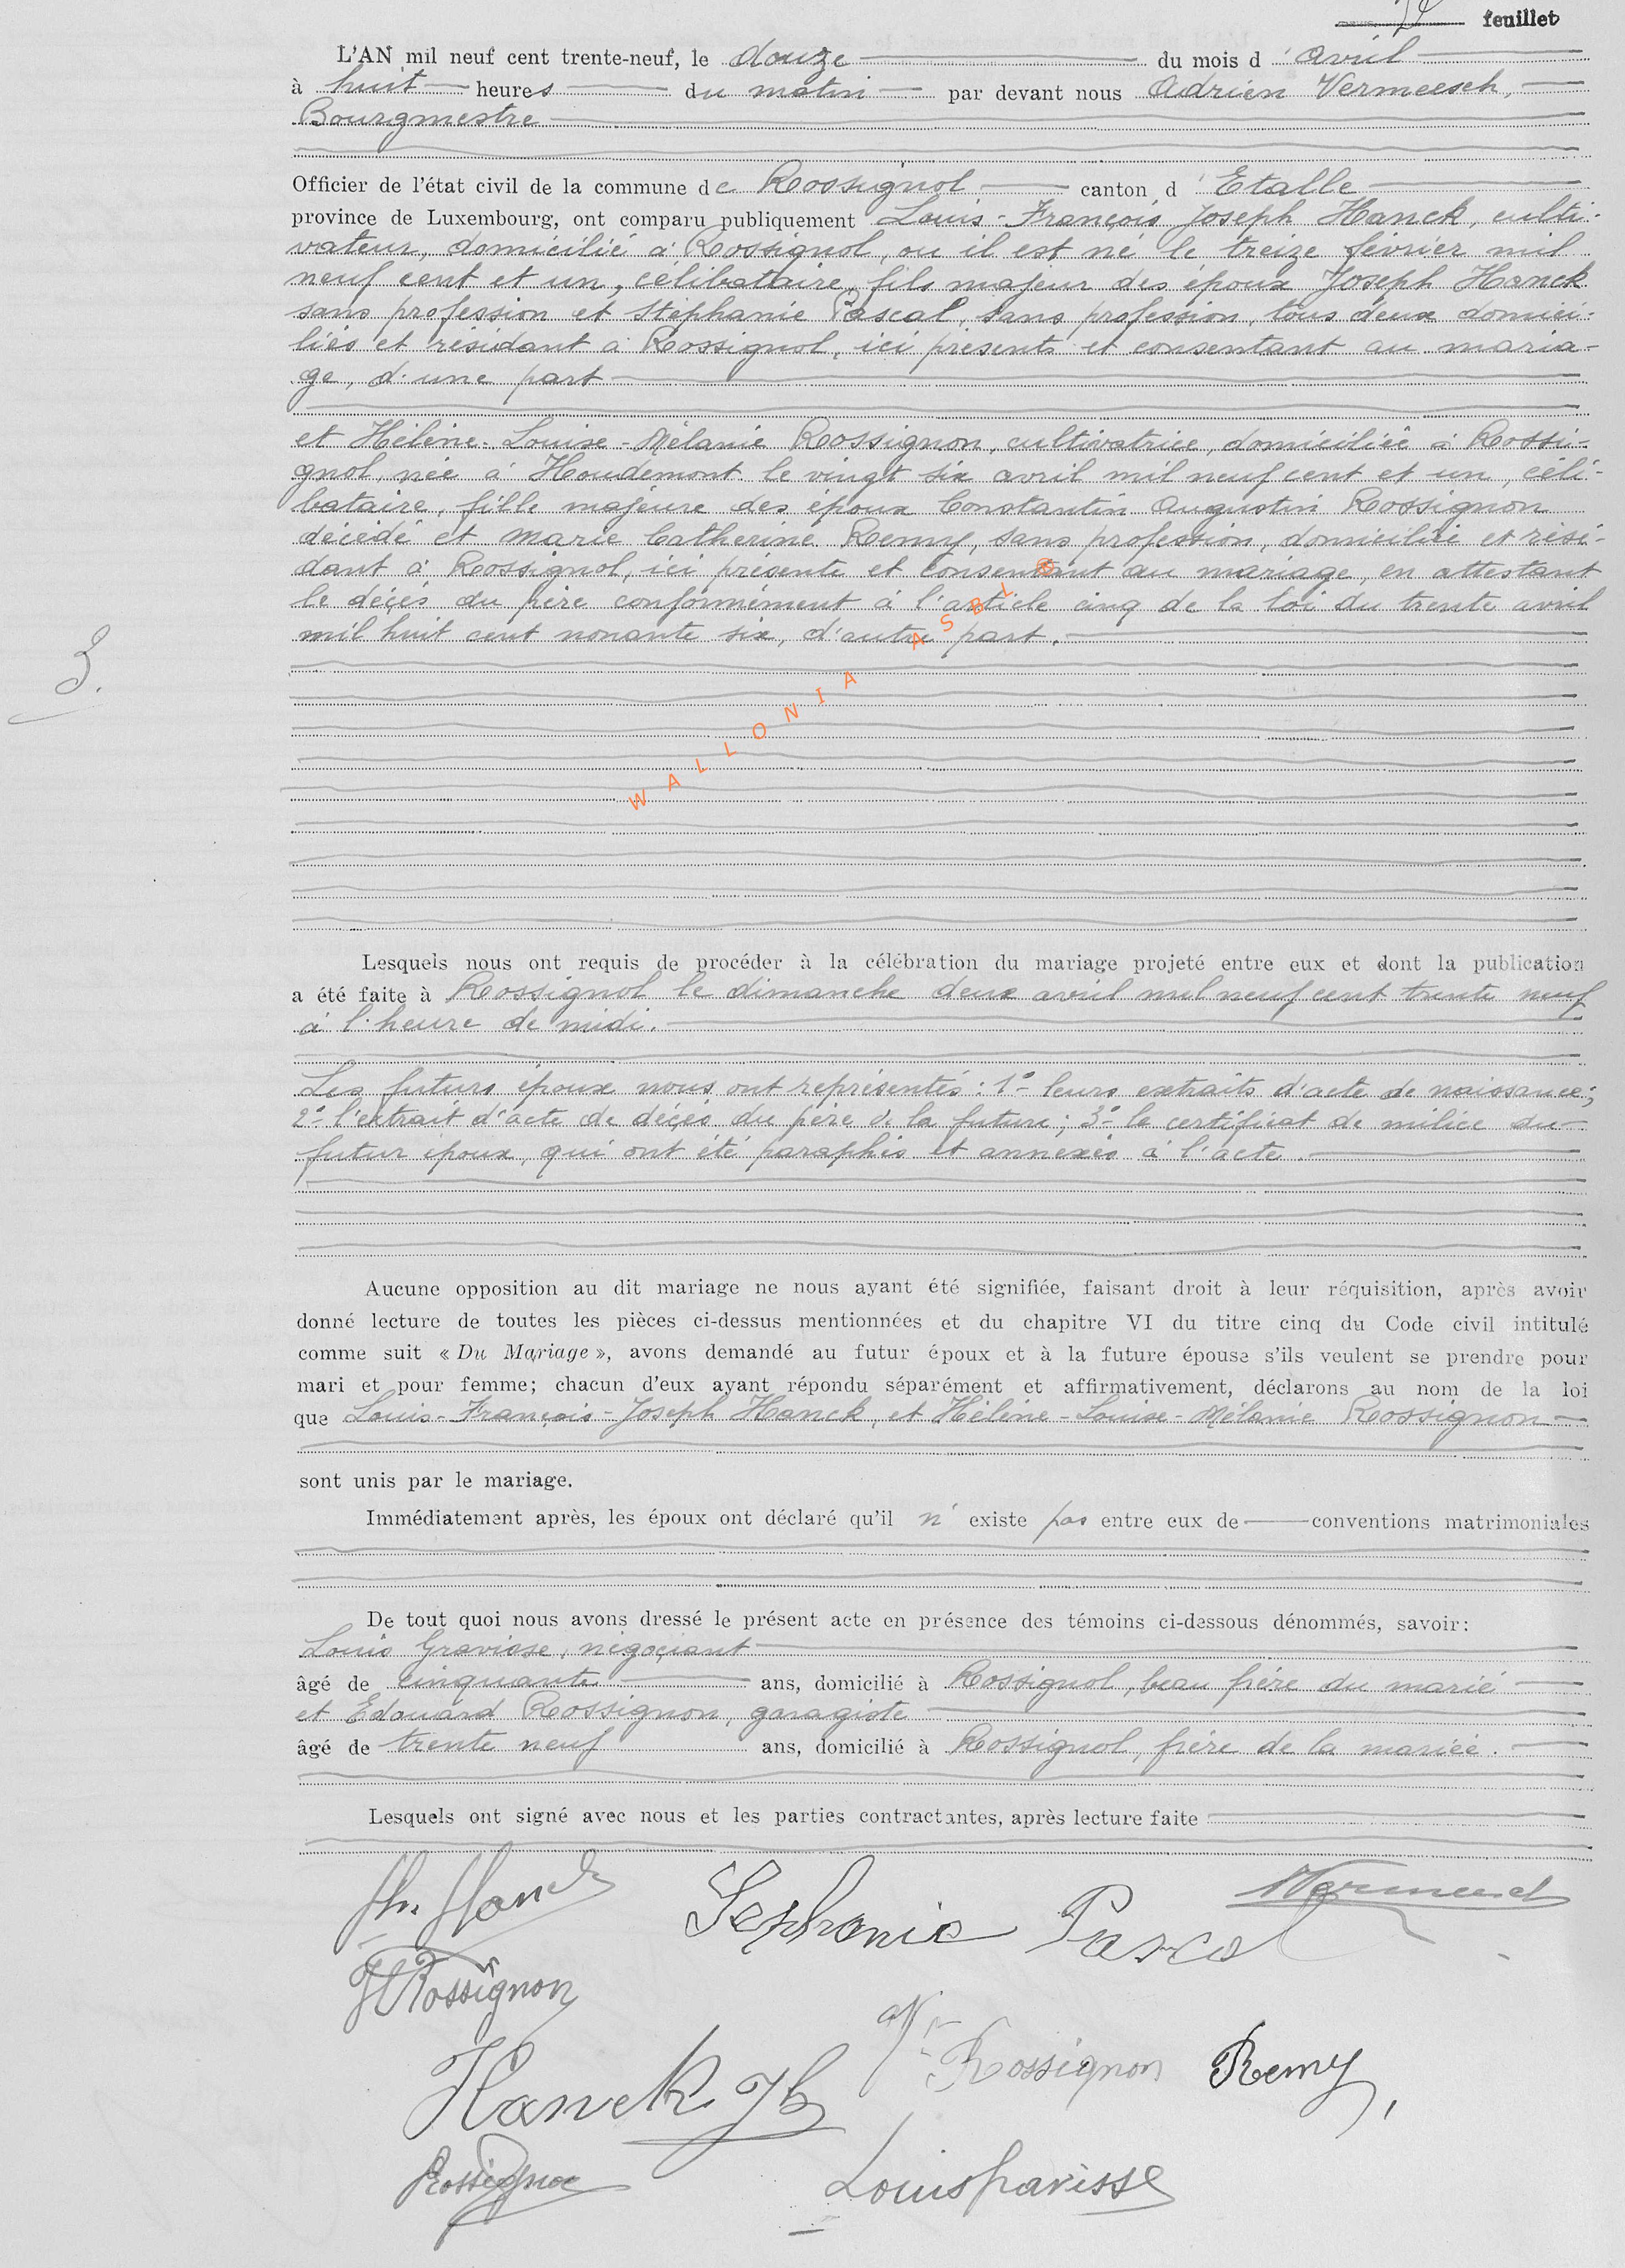 feuillet
L'AN mil neuf cent trente-neuf, le douze du mois d'avril
à huit heures du matin par devant nous Adrien Vermeesch,
Bourgmestre
Officier de l'état civil de la commune de Rossignol canton d'Etalle
province de Luxembourg, ont comparu publiquement Louis-François Joseph Hanck, culti-
vateur, domicilié à Rossignol, ou il est né le treize février mil
neuf cent et un, célibataire, fils majeur des époux Joseph Hanck
sans profession et Stéphanie Pascal, sans profession, tous deux domici-
liés et résidant à Rossignol, ici présents et consentant au maria-
ge, d'une part
et Hélène-Louise-Mélanie Rossignon, cultivatrice, domiciliée à Rossi-
gnol, née à Houdemont le vingt six avril mil neuf cent et un, céli-
bataire, fille majeure des époux Constantin Augustin Rossignon
décédé et Marie Catherine Remy, sans profession, domiciliée et rési-
dant à Rossignol, ici présente et consentant au mariage, en attestant
le décès du père conformément à l'article cinq de la loi du trente avril
mil huit cent nonante six, d'autre part.
3.
WALLONIA ASBL ®
Lesquels nous ont requis de procéder à la célébration du mariage projeté entre eux et dont la publication
a été faite à Rossignol le dimanche deux avril mil neuf cent trente neuf
à l'heure de midi.
Les futurs époux nous ont représentés: 1° leurs extraits d'acte de naissance;
2° l'extrait d'acte de décès du père de la future; 3° le certificat de milice du
futur époux, qui ont été paraphés et annexés à l'acte.
Aucune opposition au dit mariage ne nous ayant été signifiée, faisant droit à leur réquisition, après avoir
donné lecture de toutes les pièces ci-dessus mentionnées et du chapitre VI du titre cinq du Code civil intitulé
comme suit « Du Mariage », avons demandé au futur époux et à la future épouse s'ils veulent se prendre pour
mari et pour femme; chacun d'eux ayant répondu séparément et affirmativement, déclarons au nom de la loi
que Louis-François-Joseph Hanck, et Hélène-Louise-Mélanie Rossignon
sont unis par le mariage.
Immédiatement après, les époux ont déclaré qu'il n'existe pas entre eux de conventions matrimoniales
De tout quoi nous avons dressé le présent acte en présence des témoins ci-dessous dénommés, savoir:
Louis Gravisse, négociant
âgé de cinquante ans, domicilié à Rossignol, beau frère du marié
et Edouard Rossignon, garagiste
âgé de trente neuf ans, domicilié à Rossignol, frère de la mariée.
Lesquels ont signé avec nous et les parties contractantes, après lecture faite
Hanck
Sephanie Pascal
Vermeesch
H Rossignon
Rossignon Remy
Hanck Jh
Rossignon
Louis Gravisse